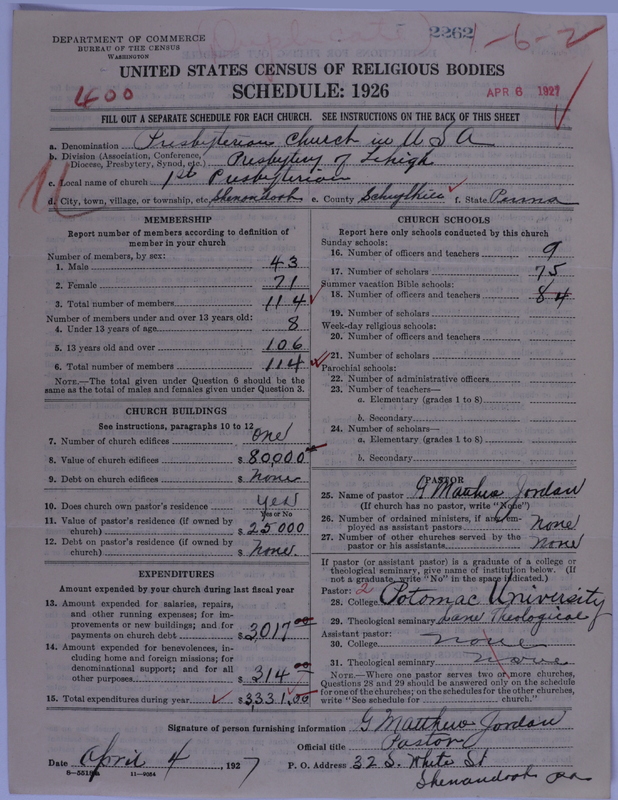 (Duplicate) 2262 1-6-2
DEPARTMENT OF COMMERCE
BUREAU OF THE CENSUS
WASHINGTON
UNITED STATES CENSUS OF RELIGIOUS BODIES
SCHEDULE: 1926
400
APR 6 1927
FILL OUT A SEPARATE SCHEDULE FOR EACH CHURCH. SEE INSTRUCTIONS ON THE BACK OF THIS SHEET
a. Denomination Presbyterian Church in U S A
b. Division (Association, Conference, Diocese, Presbytery, Synod, etc.) Presbytery of Lehigh
c. Local name of church 1st Presbyterian
d. City, town, village, or township, etc. Shenandoah e. County Schuylkill f. State Penna
MEMBERSHIP
Report number of members according to definition of
member in your church
Number of members, by sex:
1. Male 43
2. Female 71
3. Total number of members 114
Number of members under and over 13 years old:
4. Under 13 years of age 8
5. 13 years old and over 106
6. Total number of members 114
NOTE.—The total given under Question 6 should be the
same as the total of males and females given under Question 3.
CHURCH BUILDINGS
See instructions, paragraphs 10 to 12
7. Number of church edifices one
8. Value of church edifices $ 80,000
9. Debt on church edifices $ none
10. Does church own pastor's residence yes
Yes or No
11. Value of pastor's residence (if owned by
church) $ 25000
12. Debt on pastor's residence (if owned by
church) $ none.
EXPENDITURES
Amount expended by your church during last fiscal year
13. Amount expended for salaries, repairs,
and other running expenses; for im-
provements or new buildings; and for
payments on church debt $ 3,017 00
14. Amount expended for benevolences, in-
cluding home and foreign missions; for
denominational support; and for all
other purposes $ 314 00
15. Total expenditures during year $ 3,331.00
CHURCH SCHOOLS
Report here only schools conducted by this church
Sunday schools:
16. Number of officers and teachers 9
17. Number of scholars 75
Summer vacation Bible schools:
18. Number of officers and teachers 84
19. Number of scholars
Week-day religious schools:
20. Number of officers and teachers
21. Number of scholars
Parochial schools:
22. Number of administrative officers
23. Number of teachers—
a. Elementary (grades 1 to 8)
b. Secondary
24. Number of scholars—
a. Elementary (grades 1 to 8)
b. Secondary
PASTOR
25. Name of pastor G Matthew Jordan
(If church has no pastor, write "None")
26. Number of ordained ministers, if any, em-
ployed as assistant pastors none
27. Number of other churches served by the
pastor or his assistants none
If pastor (or assistant pastor) is a graduate of a college or
theological seminary, give name of institution below. (If
not a graduate, write "No" in the space indicated.)
Pastor: 2
28. College Potomac University
29. Theological seminary Lane Theological
Assistant pastor:
30. College none
31. Theological seminary none
NOTE.—Where one pastor serves two or more churches,
Questions 28 and 29 should be answered only on the schedule
for one of the churches; on the schedules for the other churches,
write "See schedule for church."
Signature of person furnishing information G Matthew Jordan
Official title Pastor
Date April 4, 1927 P. O. Address 32 S. White St
Shenandoah Pa
11-9024